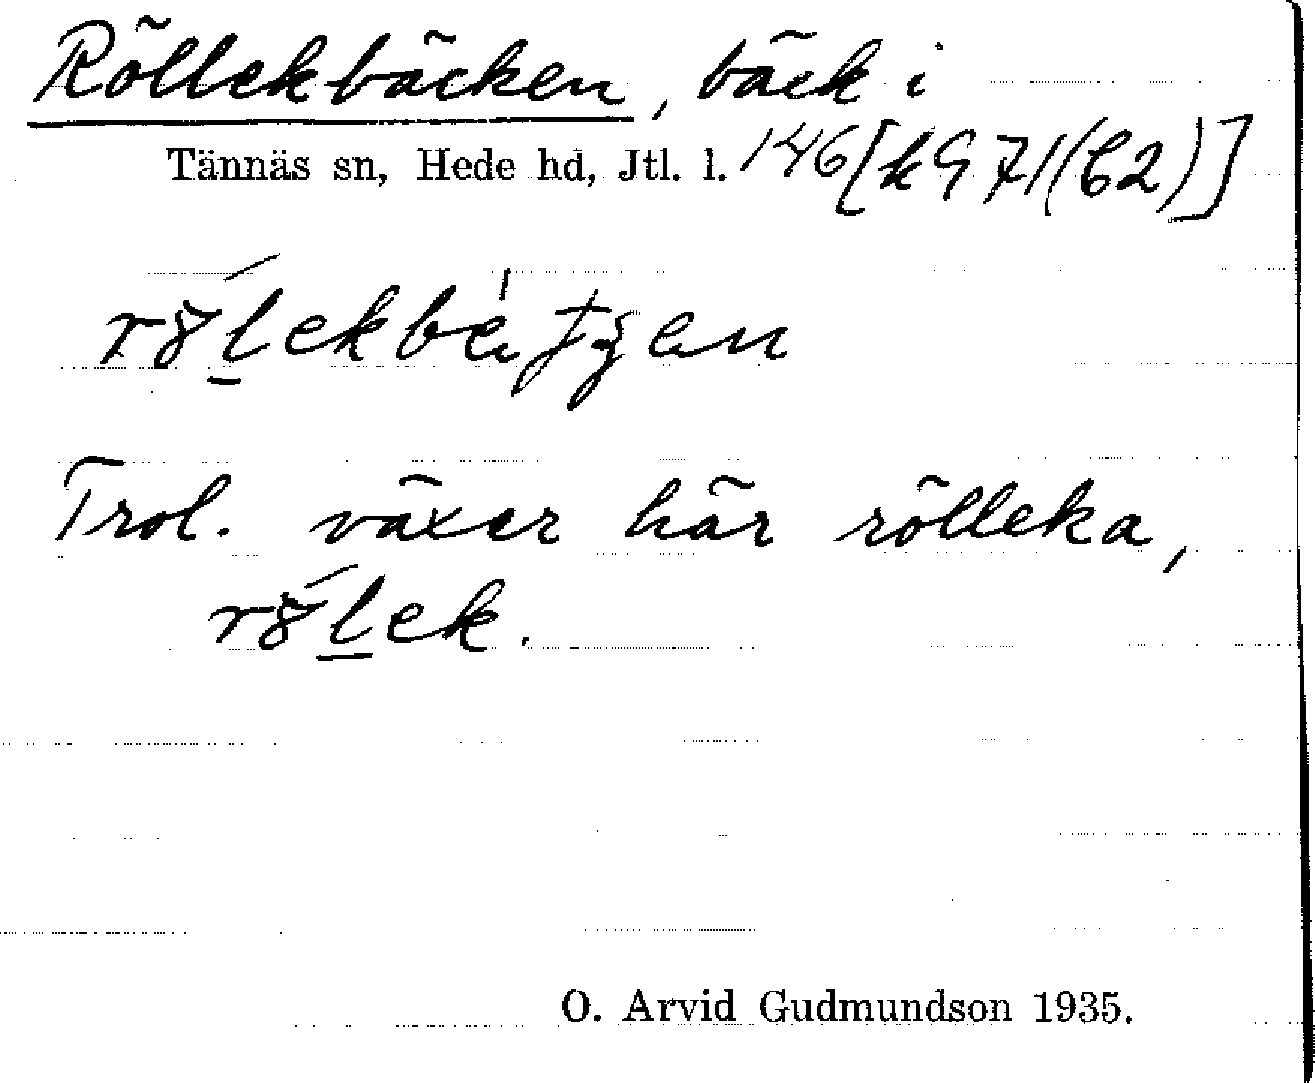 Röllekbäcken, bäck i
Tännäs sn, Hede hd, Jtl. l. 146 [k971(62)]
Trol. växer här rölleka,
O. Arvid Gudmundson 1935.